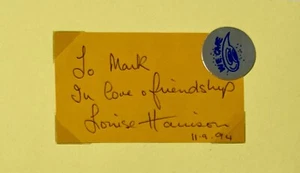 To Mark
In love & friendship
Louise Harrison
11.9.94
WE CARE